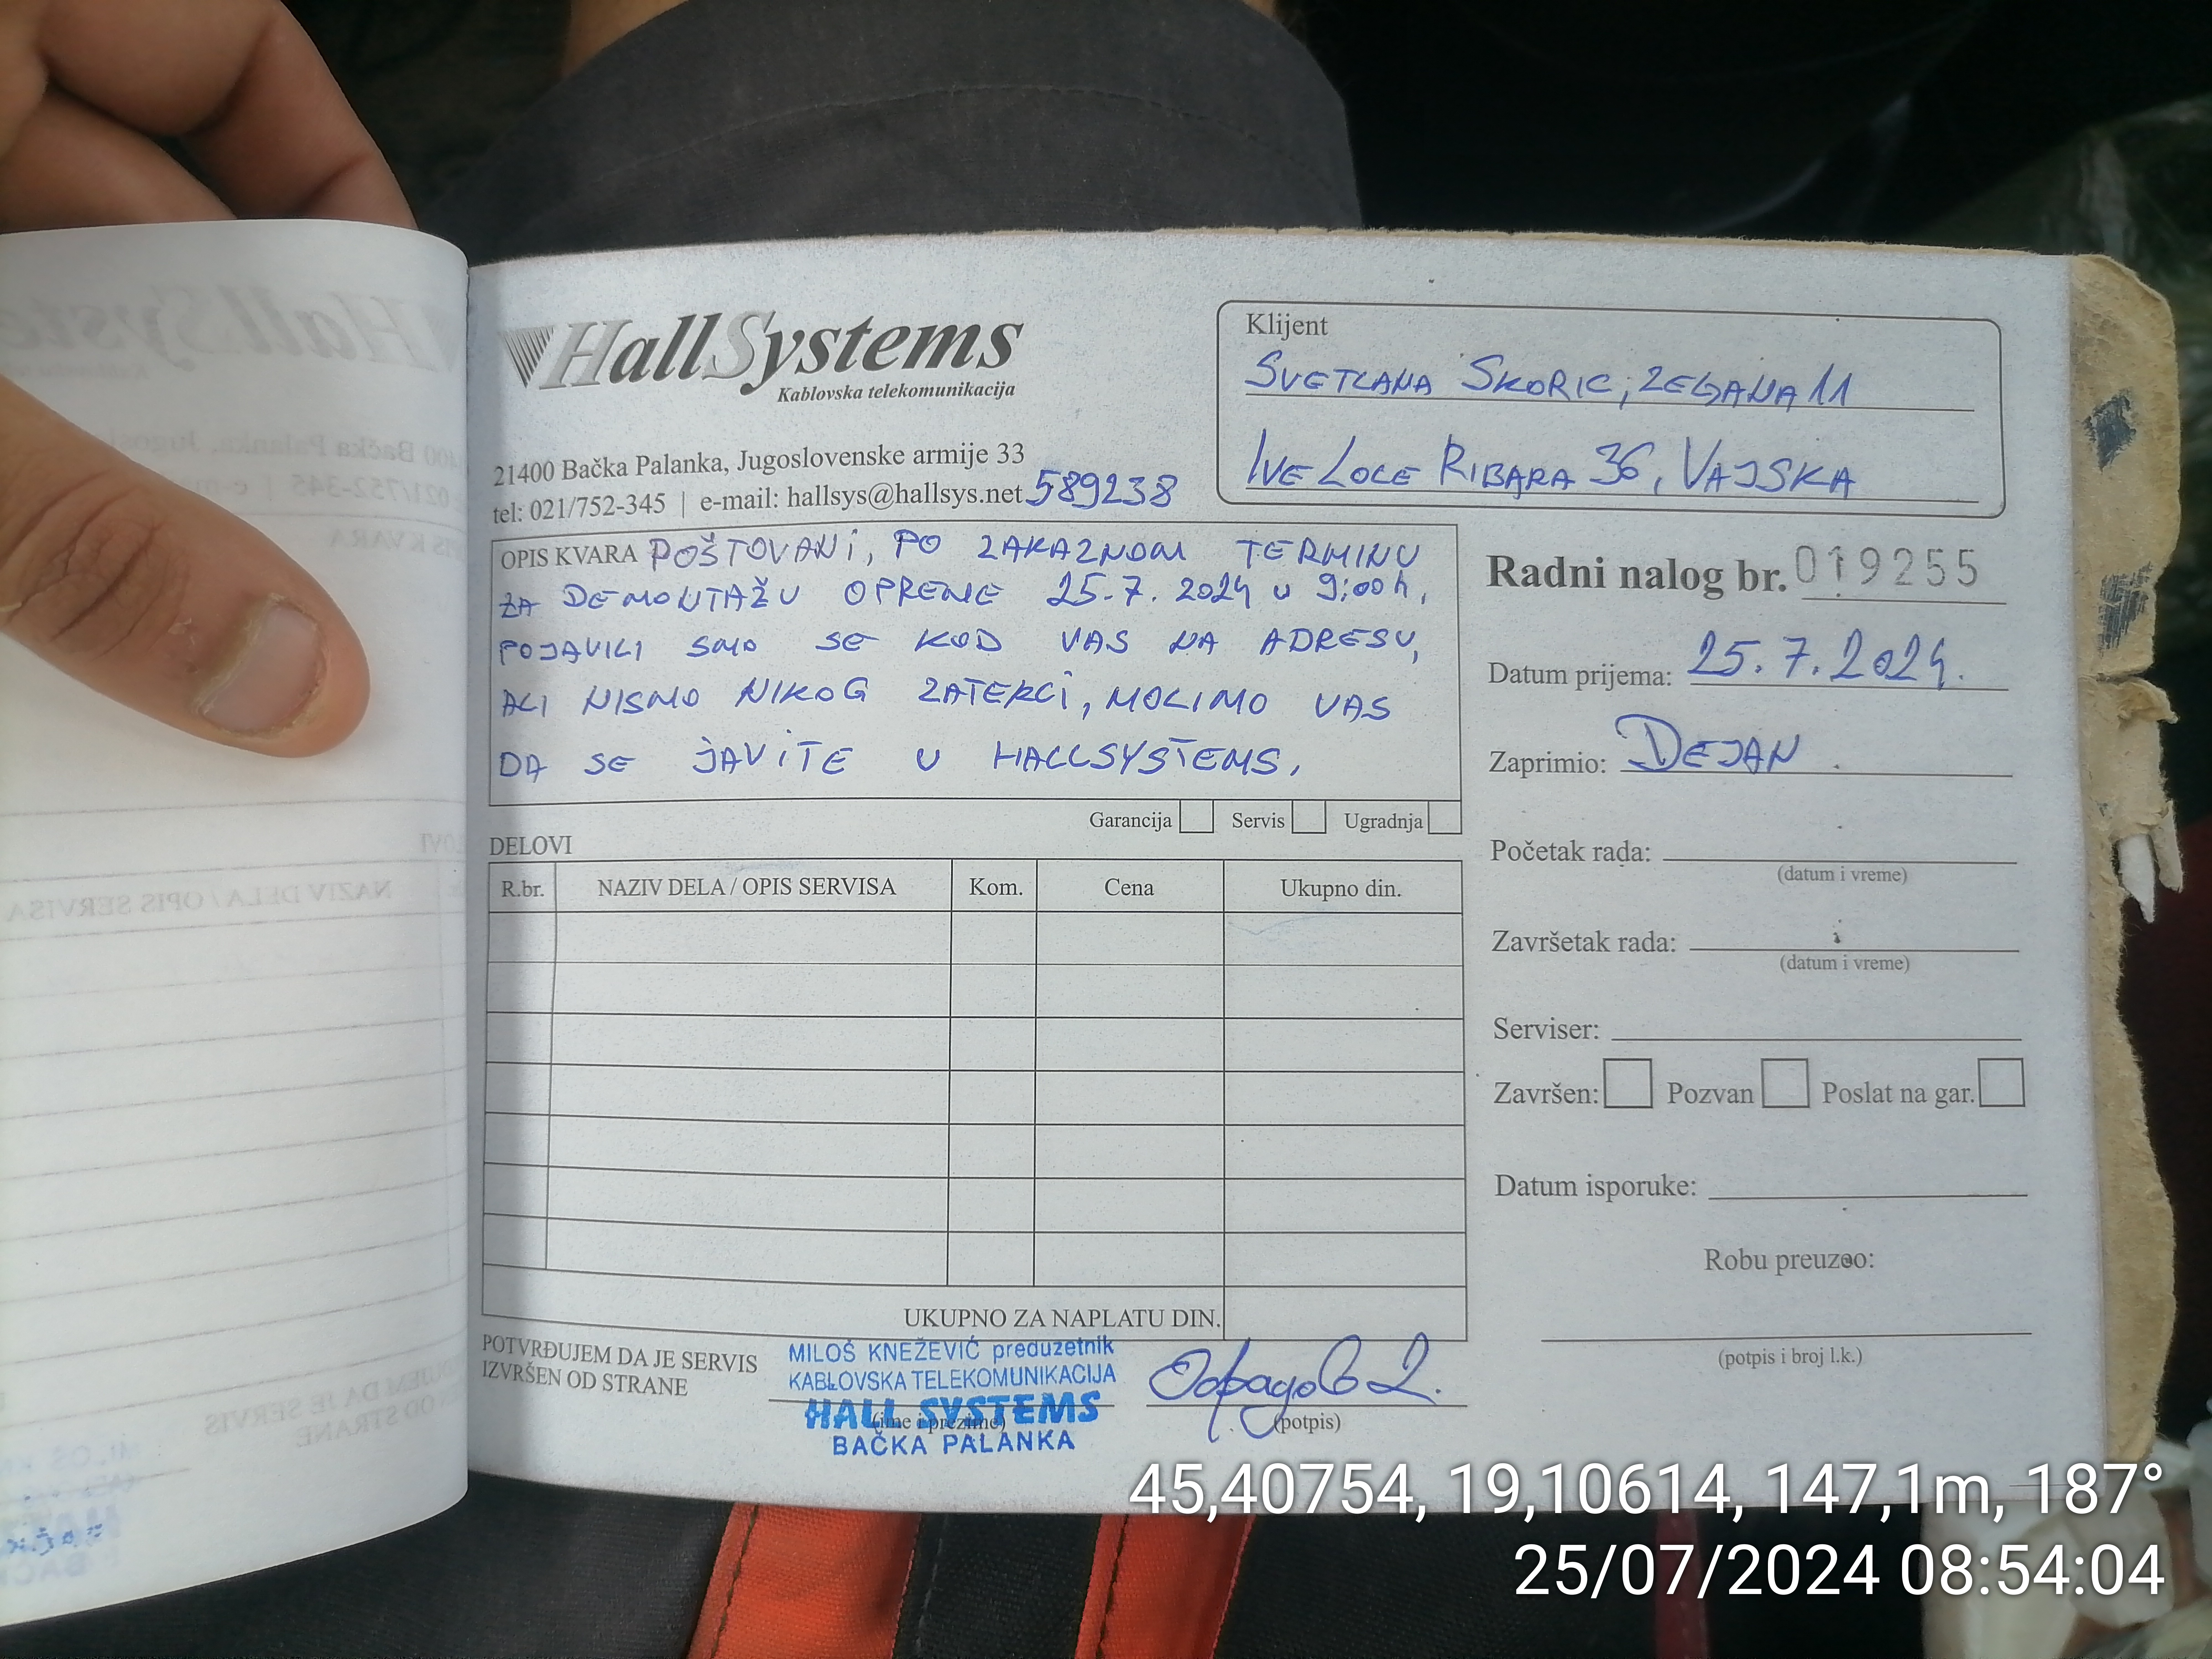 HallSystems
Kablovska telekomunikacija
21400 Bačka Palanka, Jugoslovenske armije 33
tel: 021/752-345 | e-mail: hallsys@hallsys.net 589238
Klijent
SVETLANA SKORIC, ZEGANA 11
IVE LOLE RIBARA 36, VAJSKA
OPIS KVARA POŠTOVANI, PO ZAKAZNOM TERMINU
ZA DEMONTAŽU OPREME 25.7.2024 u 9:00h,
POJAVILI SMO SE KOD VAS NA ADRESU,
ALI NISMO NIKOG ZATEKLI, MOLIMO VAS
DA SE JAVITE U HALLSYSTEMS.
Garancija Servis Ugradnja
Radni nalog br. 019255
Datum prijema: 25.7.2024.
Zaprimio: DEJAN
Početak rada:
(datum i vreme)
Završetak rada:
(datum i vreme)
Serviser:
Završen: Pozvan Poslat na gar.
Datum isporuke:
Robu preuzeo:
(potpis i broj l.k.)
DELOVI
R.br. NAZIV DELA / OPIS SERVISA Kom. Cena Ukupno din.
UKUPNO ZA NAPLATU DIN.
POTVRĐUJEM DA JE SERVIS
IZVRŠEN OD STRANE
MILOŠ KNEŽEVIĆ preduzetnik
KABLOVSKA TELEKOMUNIKACIJA
HALL SYSTEMS
(ime i prezime)
BAČKA PALANKA
(potpis)
45,40754, 19,10614, 147,1m, 187°
25/07/2024 08:54:04